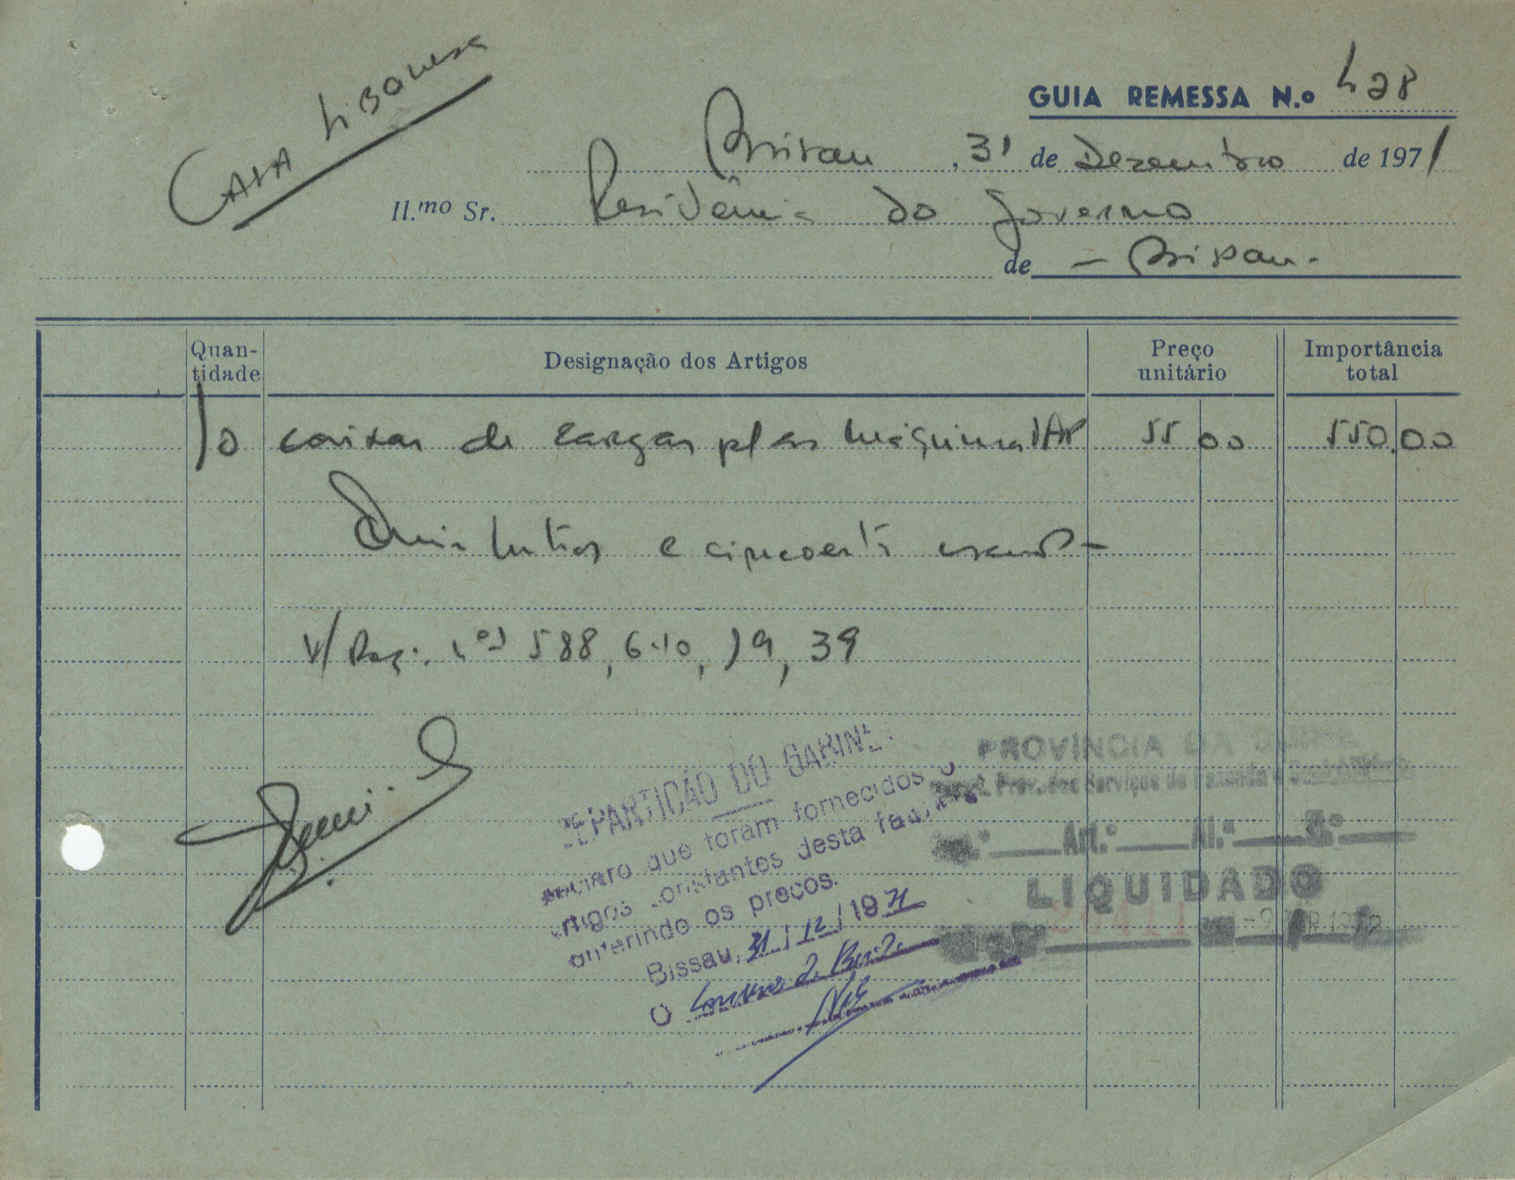 CASA LIBANESA
GUIA REMESSA N.º 428
Bissau, 31 de Dezembro de 1971
Il.mo Sr. Residência do Governo
de - Bissau.
Quantidade
Designação dos Artigos
Preço unitário
Importância total
10 caixas de cargas p/ as máquinas 55 00 550.00
Quinhentos e cincoenta escudos
V/ Req. nos 588, 610, 19, 39
REPARTIÇÃO DO GABINE
Declaro que foram fornecidos
artigos constantes desta factura
conferindo os preços.
Bissau, 31/12/1971
O
PROVÍNCIA DA GUINÉ
Prov. dos Serviços de Fazenda e
Cap.º Art.º Al.ª
LIQUIDADO